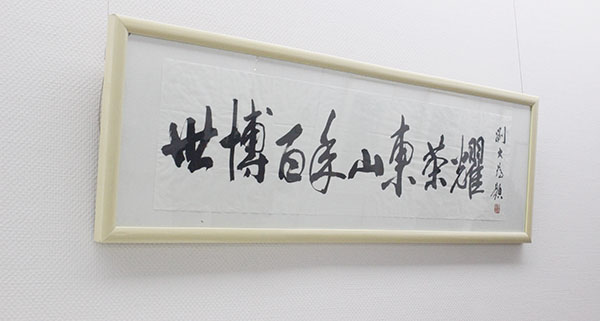 世博百年山東荣耀
劉大為題